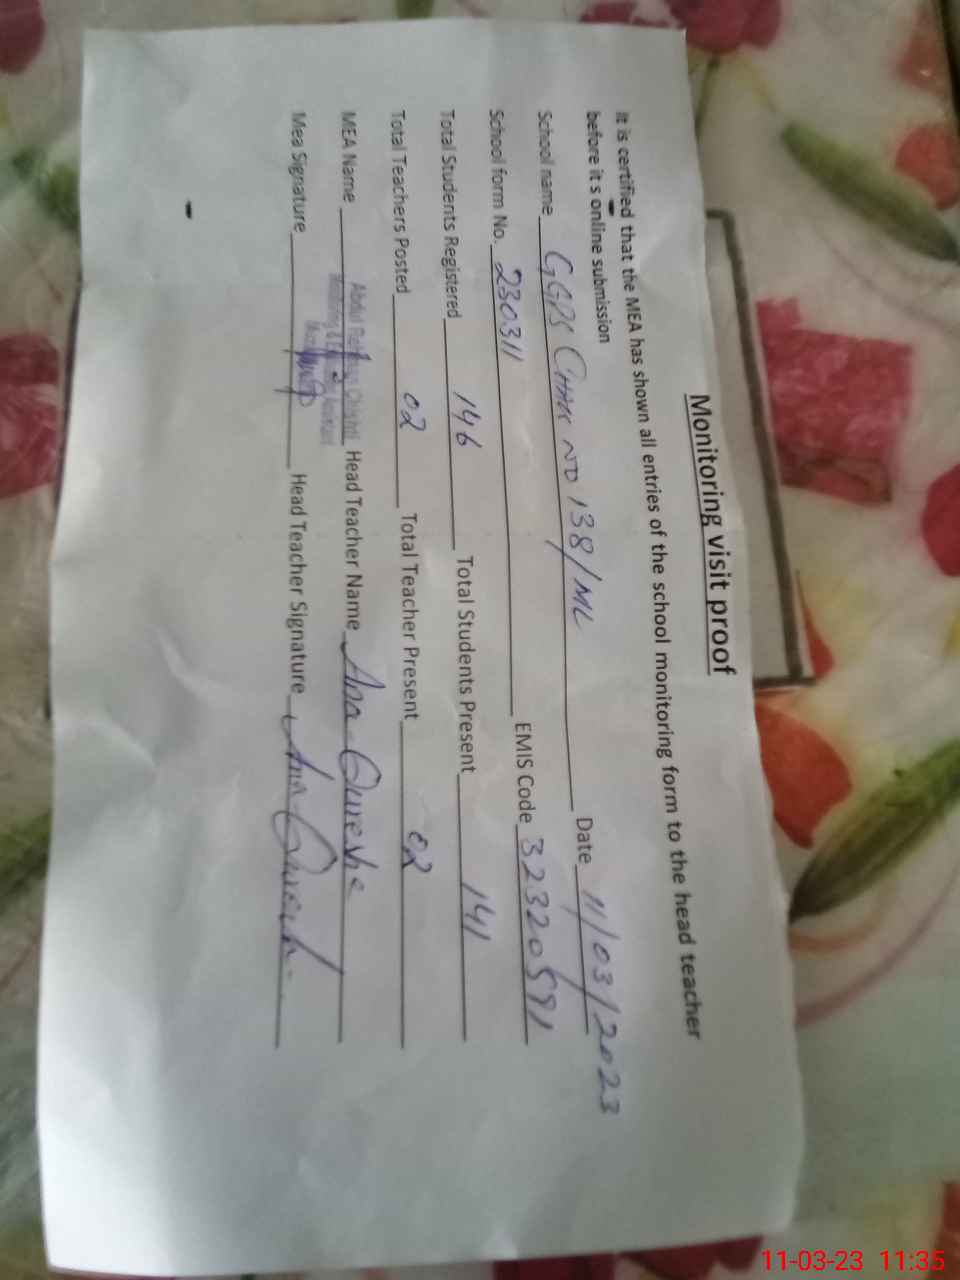 Monitoring visit proof
It is certified that the MEA has shown all entries of the school monitoring form to the head teacher
before it s online submission
School name GGPS CHAK NO 138/ML Date 11/03/2023
School form No. 230311 EMIS Code 32320591
Total Students Registered 146 Total Students Present 141
Total Teachers Posted 02 Total Teacher Present 02
MEA Name Abdul Chishti Head Teacher Name
Mea Signature Head Teacher Signature
11-03-23 11:35